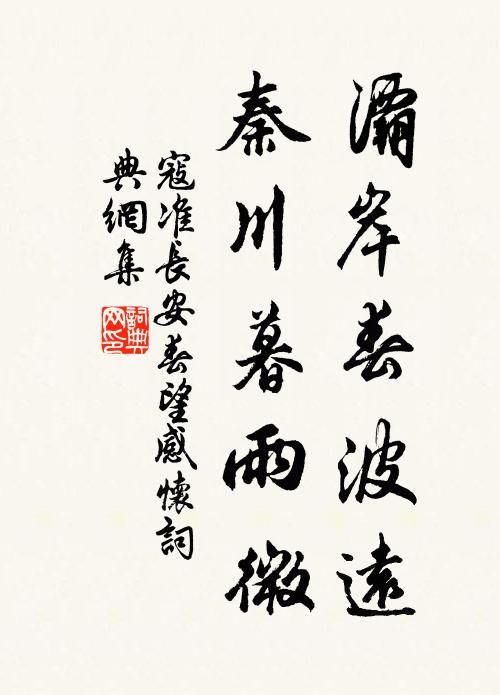 灞岸春波遠
秦川暮雨微
寇准長安春望感懷詞
典網集
詞典
网印